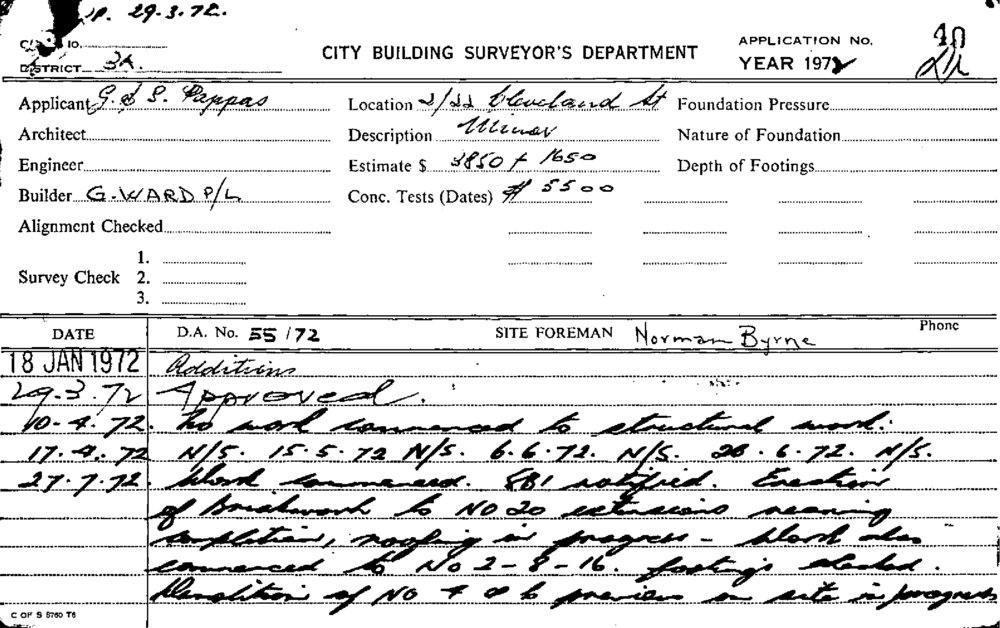 P. 29.3.72.
DISTRICT 3A.
CITY BUILDING SURVEYOR'S DEPARTMENT
APPLICATION No.
YEAR 1972
Applicant G. & S. Pappas
Location 2/22 Cleveland St
Foundation Pressure
Architect
Description Minor
Nature of Foundation
Engineer
Estimate $ 3850 + 1650
Depth of Footings
Builder G. WARD P/L
Conc. Tests (Dates) $ 5500
Alignment Checked
Survey Check 1.
2.
3.
DATE D.A. No. 55/72 SITE FOREMAN Norman Byrne Phone
18 JAN 1972 Additions
29.3.72 Approved.
10-4.72. No work commenced to structural work.
17.4.72 N/S. 15.5.72 N/S. 6.6.72. N/S. 26.6.72. N/S.
27.7.72. Work commenced. SBI notified. Erection
of Brickwork to No 20 extensions nearing
completion, roofing in progress - work also
commenced to No 2-8-16. footings checked.
Demolition of No 4 & 6 premises on site in progress
C OF S 5760 T6